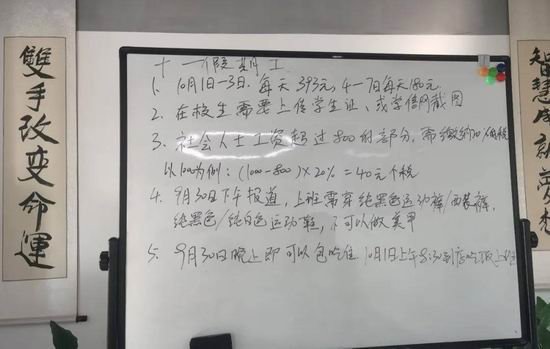 雙手改变命運
十一假期工
1. 10月1日—3日.每天393元,4—7日每天180元.
2. 在校生需要上传学生证、或学信网截图
3. 社会人士工资超过800的部分,需缴纳 个税
以1000为例:(1000-800)×20% = 40元个税
4. 9月30日下午报道,上班需穿纯黑色运动裤/西装裤,
纯黑色/纯白色运动鞋,不可以做美甲
5. 9月30日晚上即可以包吃住 10月1日上午8:30到店吃饭上
智慧成就梦想